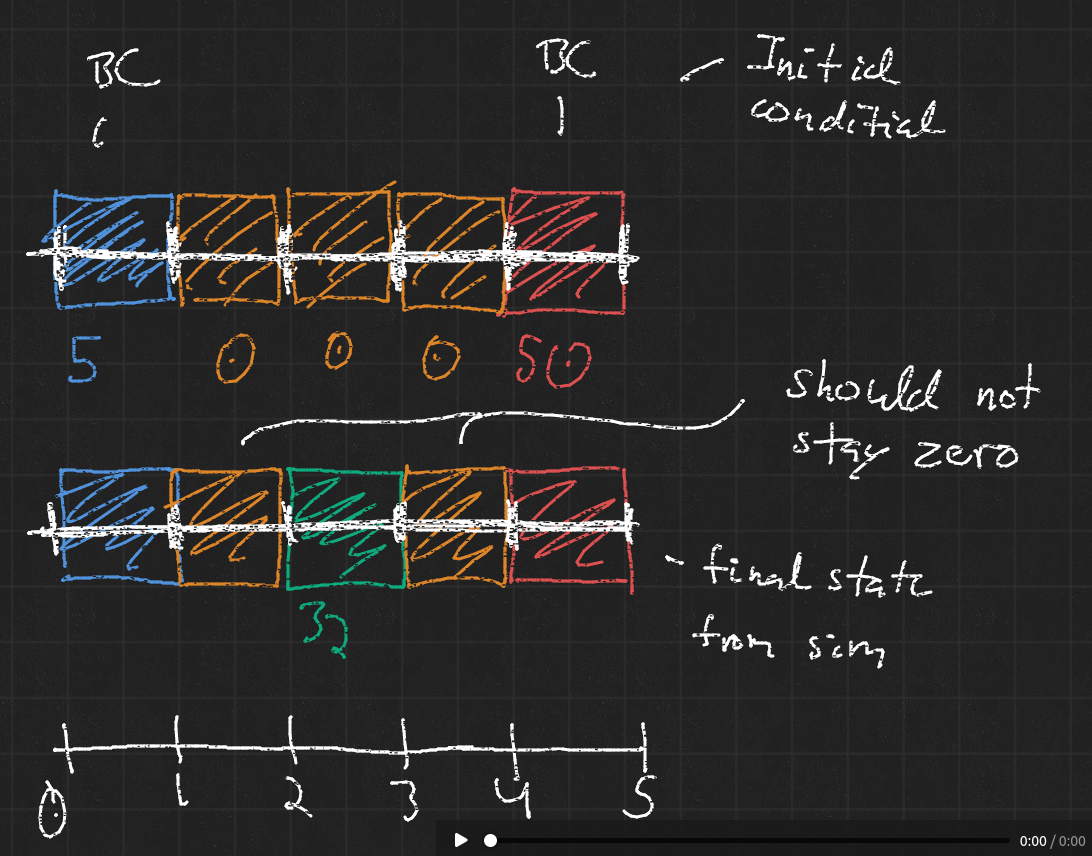 BC
BC
Initial
conditial
5 0 0 0 50
should not
stay zero
final state
from sim
32
0 1 2 3 4 5
0:00 / 0:00